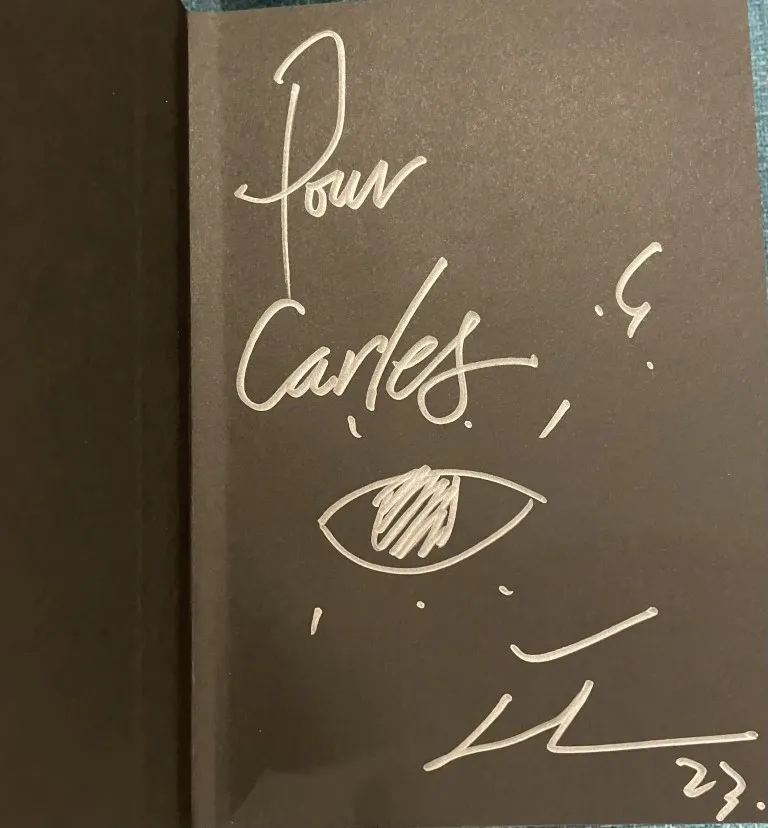 Pour
Carles
23.